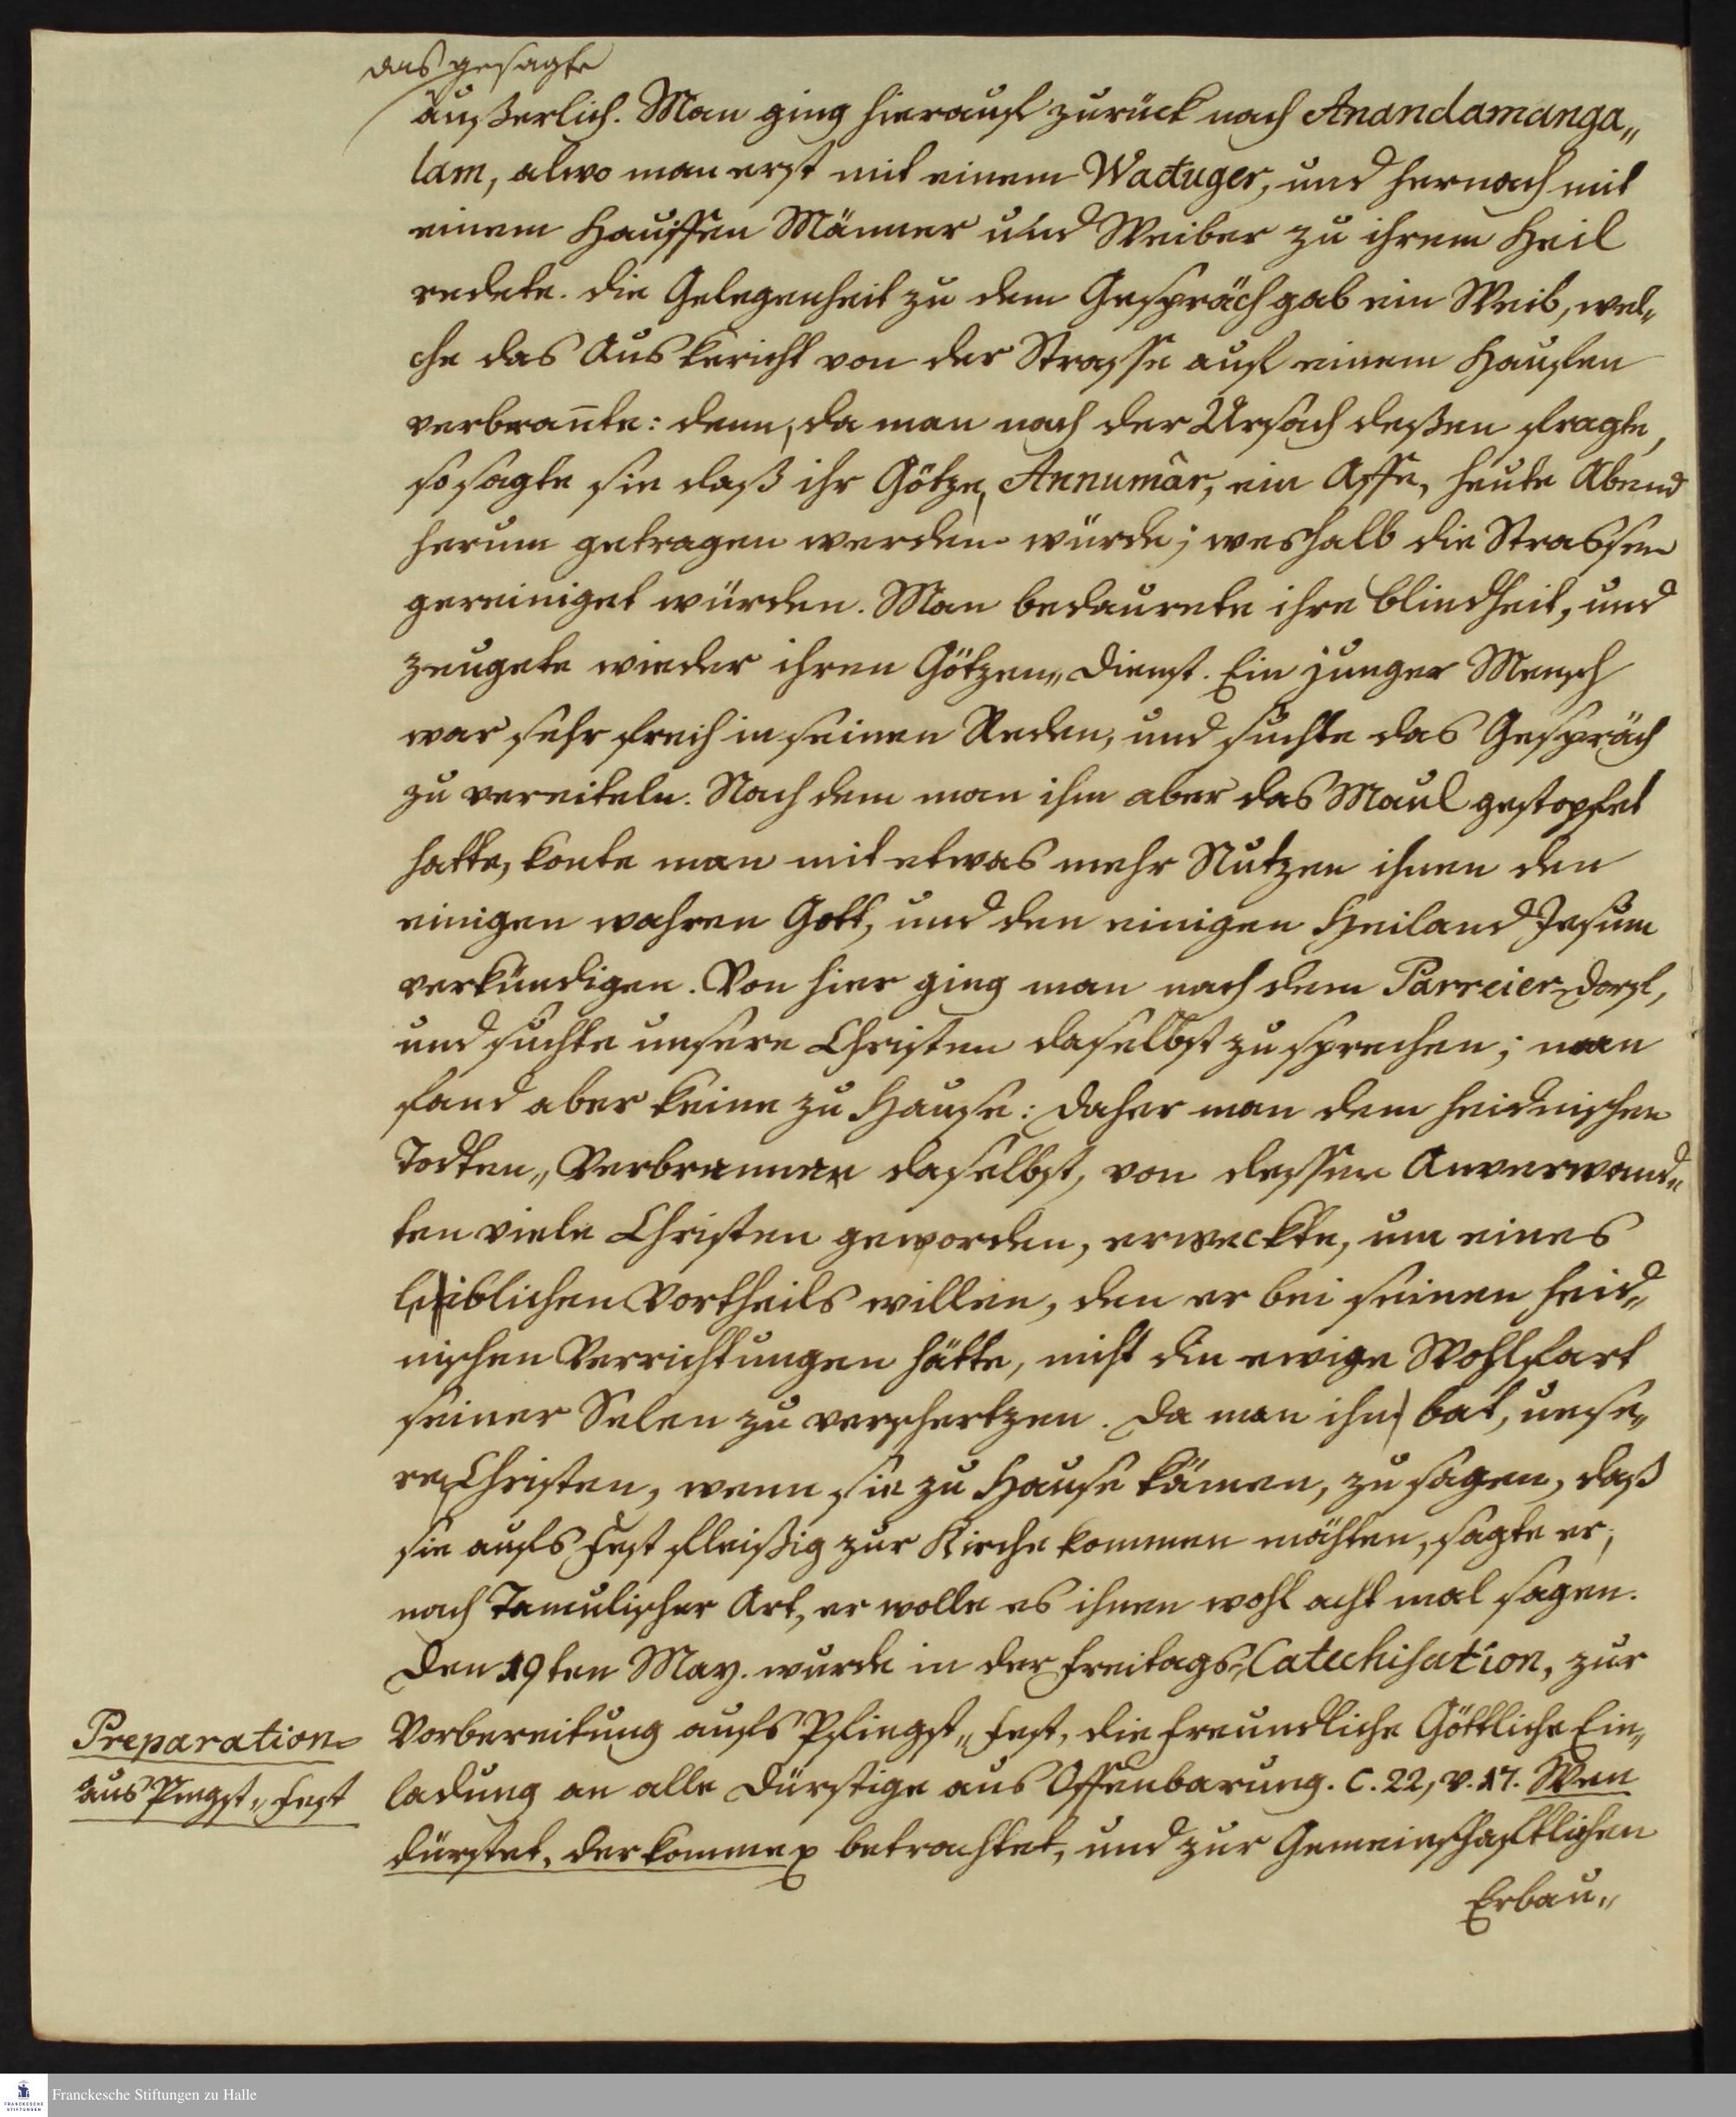 das gesagte
äußerlich. Man ging hierauf zurück nach Anandamanga„
lam, alwo man erst mit einem Waduger, und hernach mit
einem Hauffen Männer und Weiber zu ihrem Heil
redete. die Gelegenheit zu dem Gespräch gab ein Weib, wel„
che das Auskericht von der Strasse auf einem Haufen
verbran̄te: denn, da man nach der Ursach deßen fragte,
so sagte sie daß ihr Götze, Annumâr, ein Affe, heute Abend
herum getragen werden würde; weshalb die Strassen
gereiniget würden. Man bedaurete ihre blindheit, und
zeugete wieder ihren Götzen„Dienst. Ein junger Mensch
war sehr frech in seinen Reden, und suchte das Gespräch
zu vereiteln. Nach dem man ihm aber das Maul gestopfet
hatte, konte man mit etwas mehr Nutzen ihnen den
einigen wahren Gott, und den einigen Heiland Jesum
verkündigen. Von hier ging man nach dem Parreier„dorf,
und suchte unsere Christen daselbst zu sprechen; man
fand aber keine zu Hause: daher man dem heidnischen
Todten„Verbrenner daselbst, von dessen Anverwand„
ten viele Christen geworden, erweckte, um eines
leiblichen Vortheils willen, den er bei seinen heid„
nischen Verrichtungen hätte, nicht die ewige Wohlfart
seiner Selen zu verschertzen. Da man ihn bat, unse„
re Christen, wenn sie zu Hause kämen, zu sagen, daß
sie aufs Fest fleißig zur Kirche kommen möchten, sagte er,
nach Tamulischer Art, er wolle es ihnen wohl acht mal sagen.
Den 19ten May. wurde in der Freitags„Catechisation, zur
Preparation
aus Pingst„Fest
Vorbereitung aufs Pfingst„Fest, die freundliche Göttliche Ein„
ladung an alle Dürstige aus Offenbarung. C. 22, v. 17. Wen
dürstet, der komme betrachtet, und zur Gemeinschaftlichen
Erbau„
Franckesche Stiftungen zu Halle
FRANCKESCHE
STIFTUNGEN